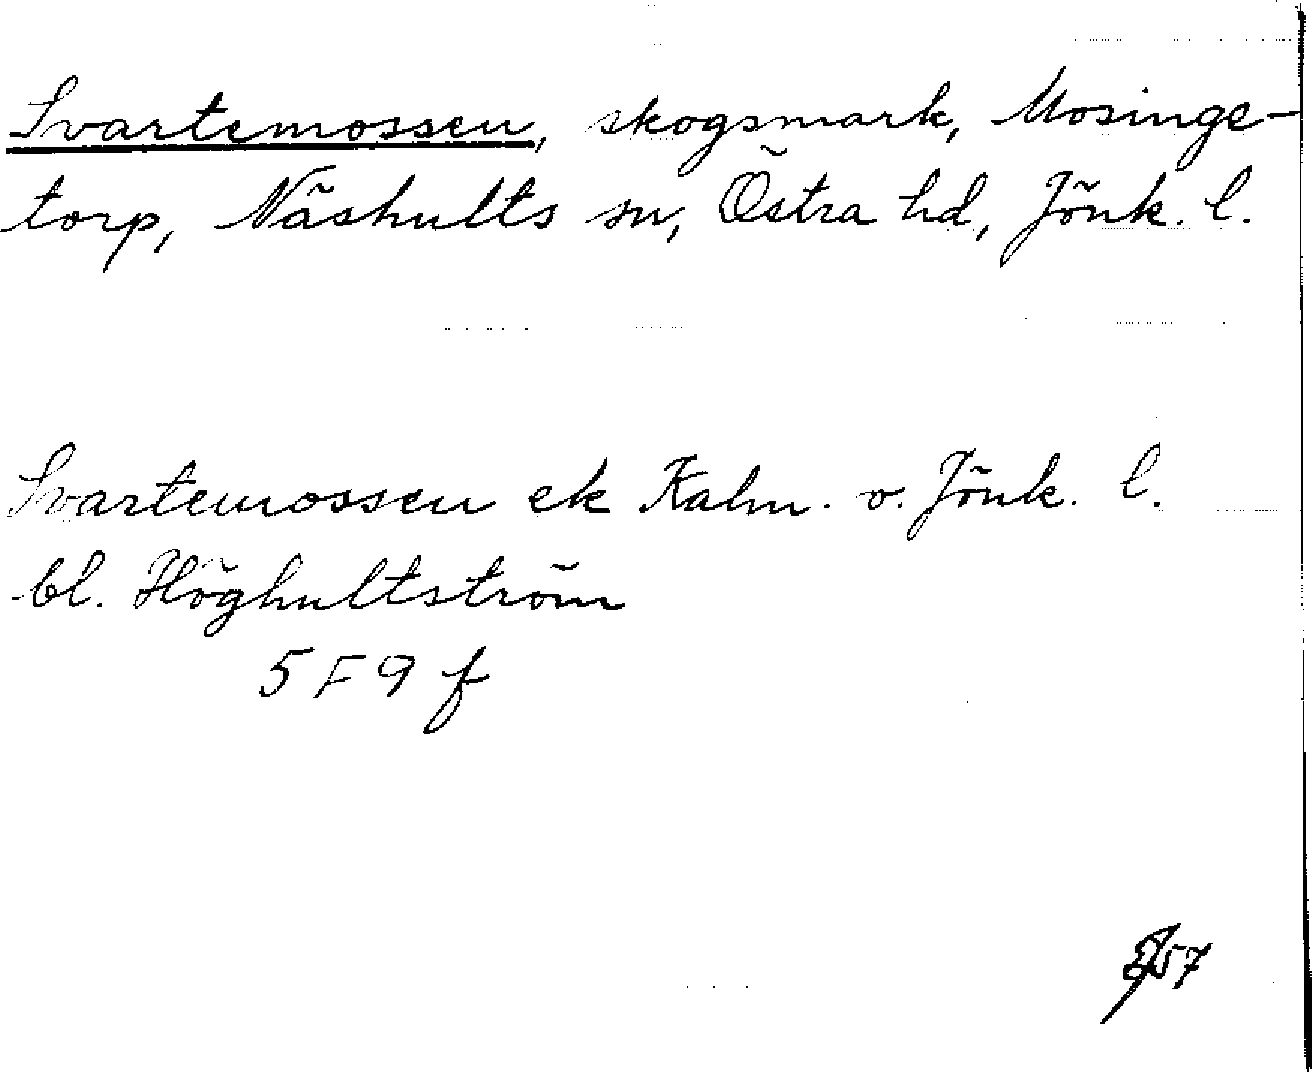 Svartemossen, skogsmark, Mosinge-
torp, Näshults sn, Östra hd, Jönk. l.
Svartemossen ek Kalm. o. Jönk. l.
bl. Höghultström
5 F 9 f
57